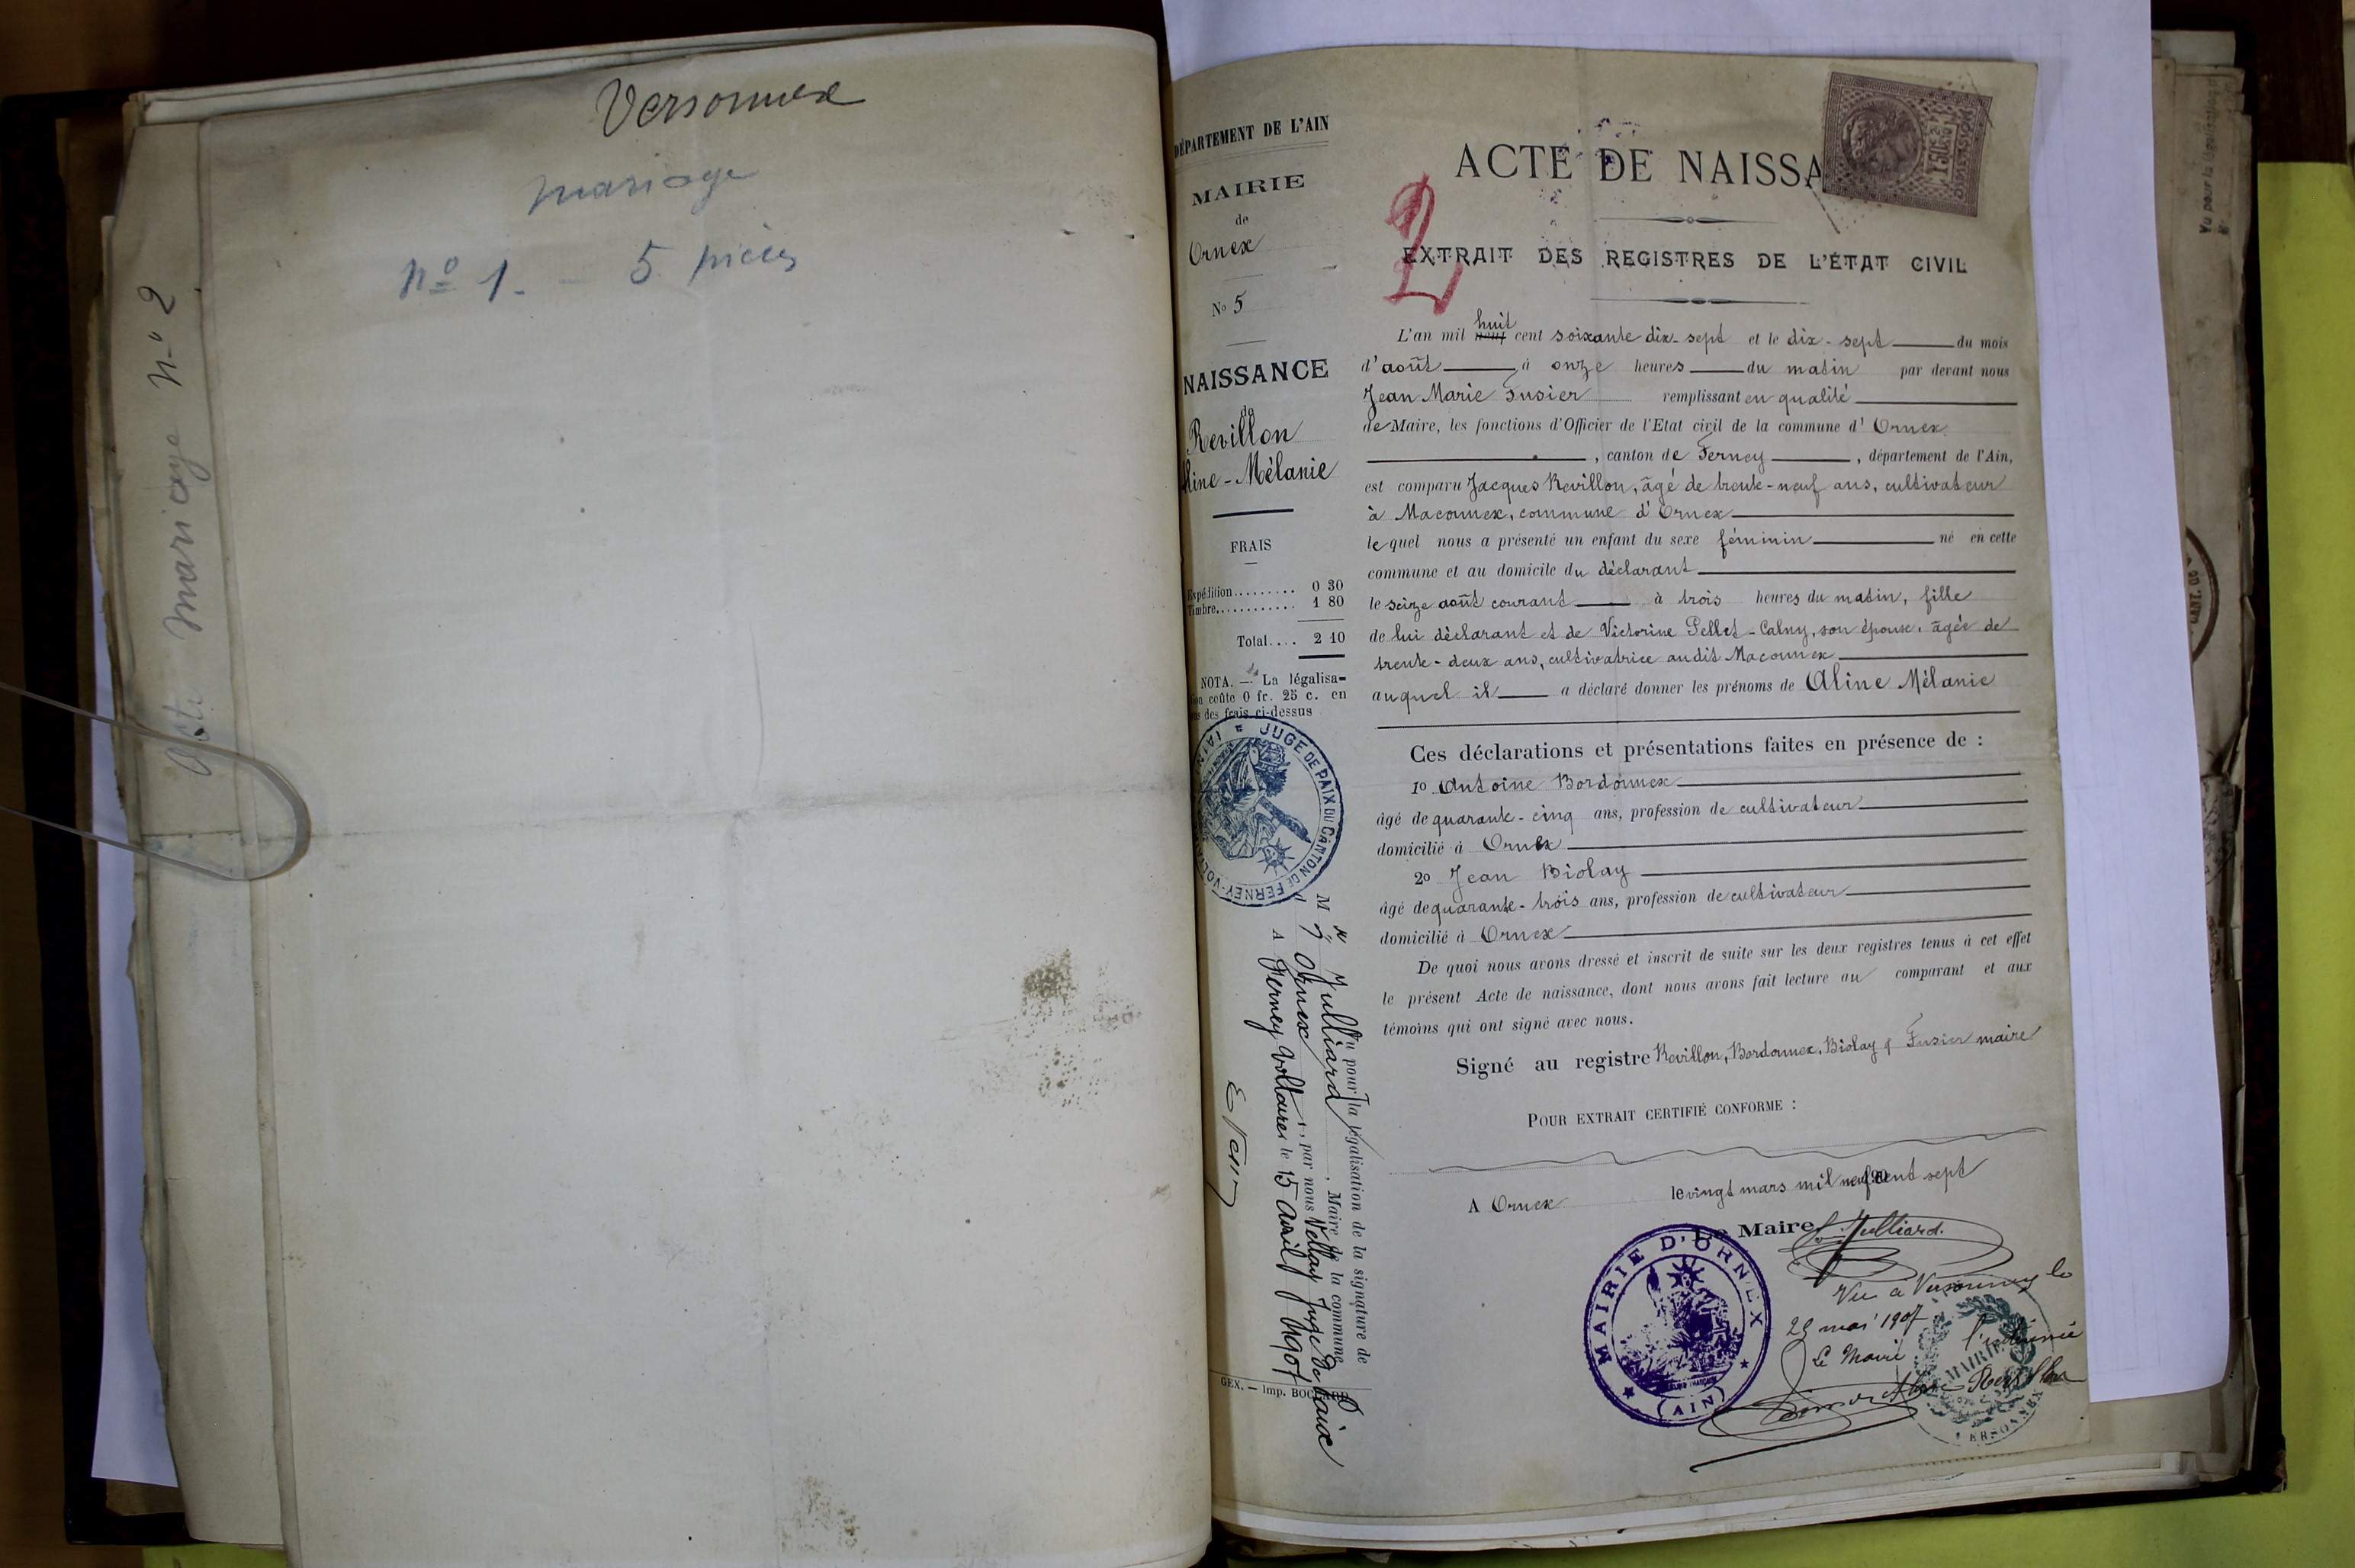 Versonnex
mariage
No 1. - 5 pièces
Acte mariage No 2
DÉPARTEMENT DE L'AIN
MAIRIE
de
Ornex
No 5
NAISSANCE
de
Revillon
Aline-Mélanie
FRAIS
Expédition......... 0 30
Timbre............ 1 80
Total.... 2 10
NOTA. — La légalisa-
tion coûte 0 fr. 25 c. en
plus des frais ci-dessus
JUGE DE PAIX DU CANTON DE FERNEY-VOLTAIRE
Vu pour la légalisation de la signature de
M Julliard, Maire de la commune
d'Ornex, par nous Vellay Juge de Paix
A Ferney Voltaire le 15 avril 1907
GEX. — Imp.
ACTE DE NAISSA
2
EXTRAIT DES REGISTRES DE L'ÉTAT CIVIL
L'an mil huit neuf cent soixante dix-sept et le dix-sept du mois
d'août à onze heures du matin par devant nous
Jean Marie Fusier remplissant en qualité
de Maire, les fonctions d'Officier de l'Etat civil de la commune d' Ornex
, canton de Ferney, département de l'Ain,
est comparu Jacques Revillon, âgé de trente-neuf ans, cultivateur
à Maconnex, commune d'Ornex
lequel nous a présenté un enfant du sexe féminin né en cette
commune et au domicile du déclarant
le seize août courant à trois heures du matin, fille
de lui déclarant et de Victorine Pellet-Calny, son épouse, âgée de
trente-deux ans, cultivatrice audit Maconnex
auquel il a déclaré donner les prénoms de Aline Mélanie
Ces déclarations et présentations faites en présence de :
1o Antoine Bordonnex
âgé de quarante-cinq ans, profession de cultivateur
domicilié à Ornex
2o Jean Biolay
âgé de quarante-trois ans, profession de cultivateur
domicilié à Ornex
De quoi nous avons dressé et inscrit de suite sur les deux registres tenus à cet effet
le présent Acte de naissance, dont nous avons fait lecture au comparant et aux
témoins qui ont signé avec nous.
Signé au registre Revillon, Bordonnex, Biolay & Fusier maire
POUR EXTRAIT CERTIFIÉ CONFORME :
A Ornex le vingt mars mil neuf cent sept
Le Maire
Julliard.
MAIRIE D'ORNEX
(AIN)
Vu à Versonnex le
29 mai 1907
Le Maire
MAIRIE
VERSONNEX
Vu pour la légalisation